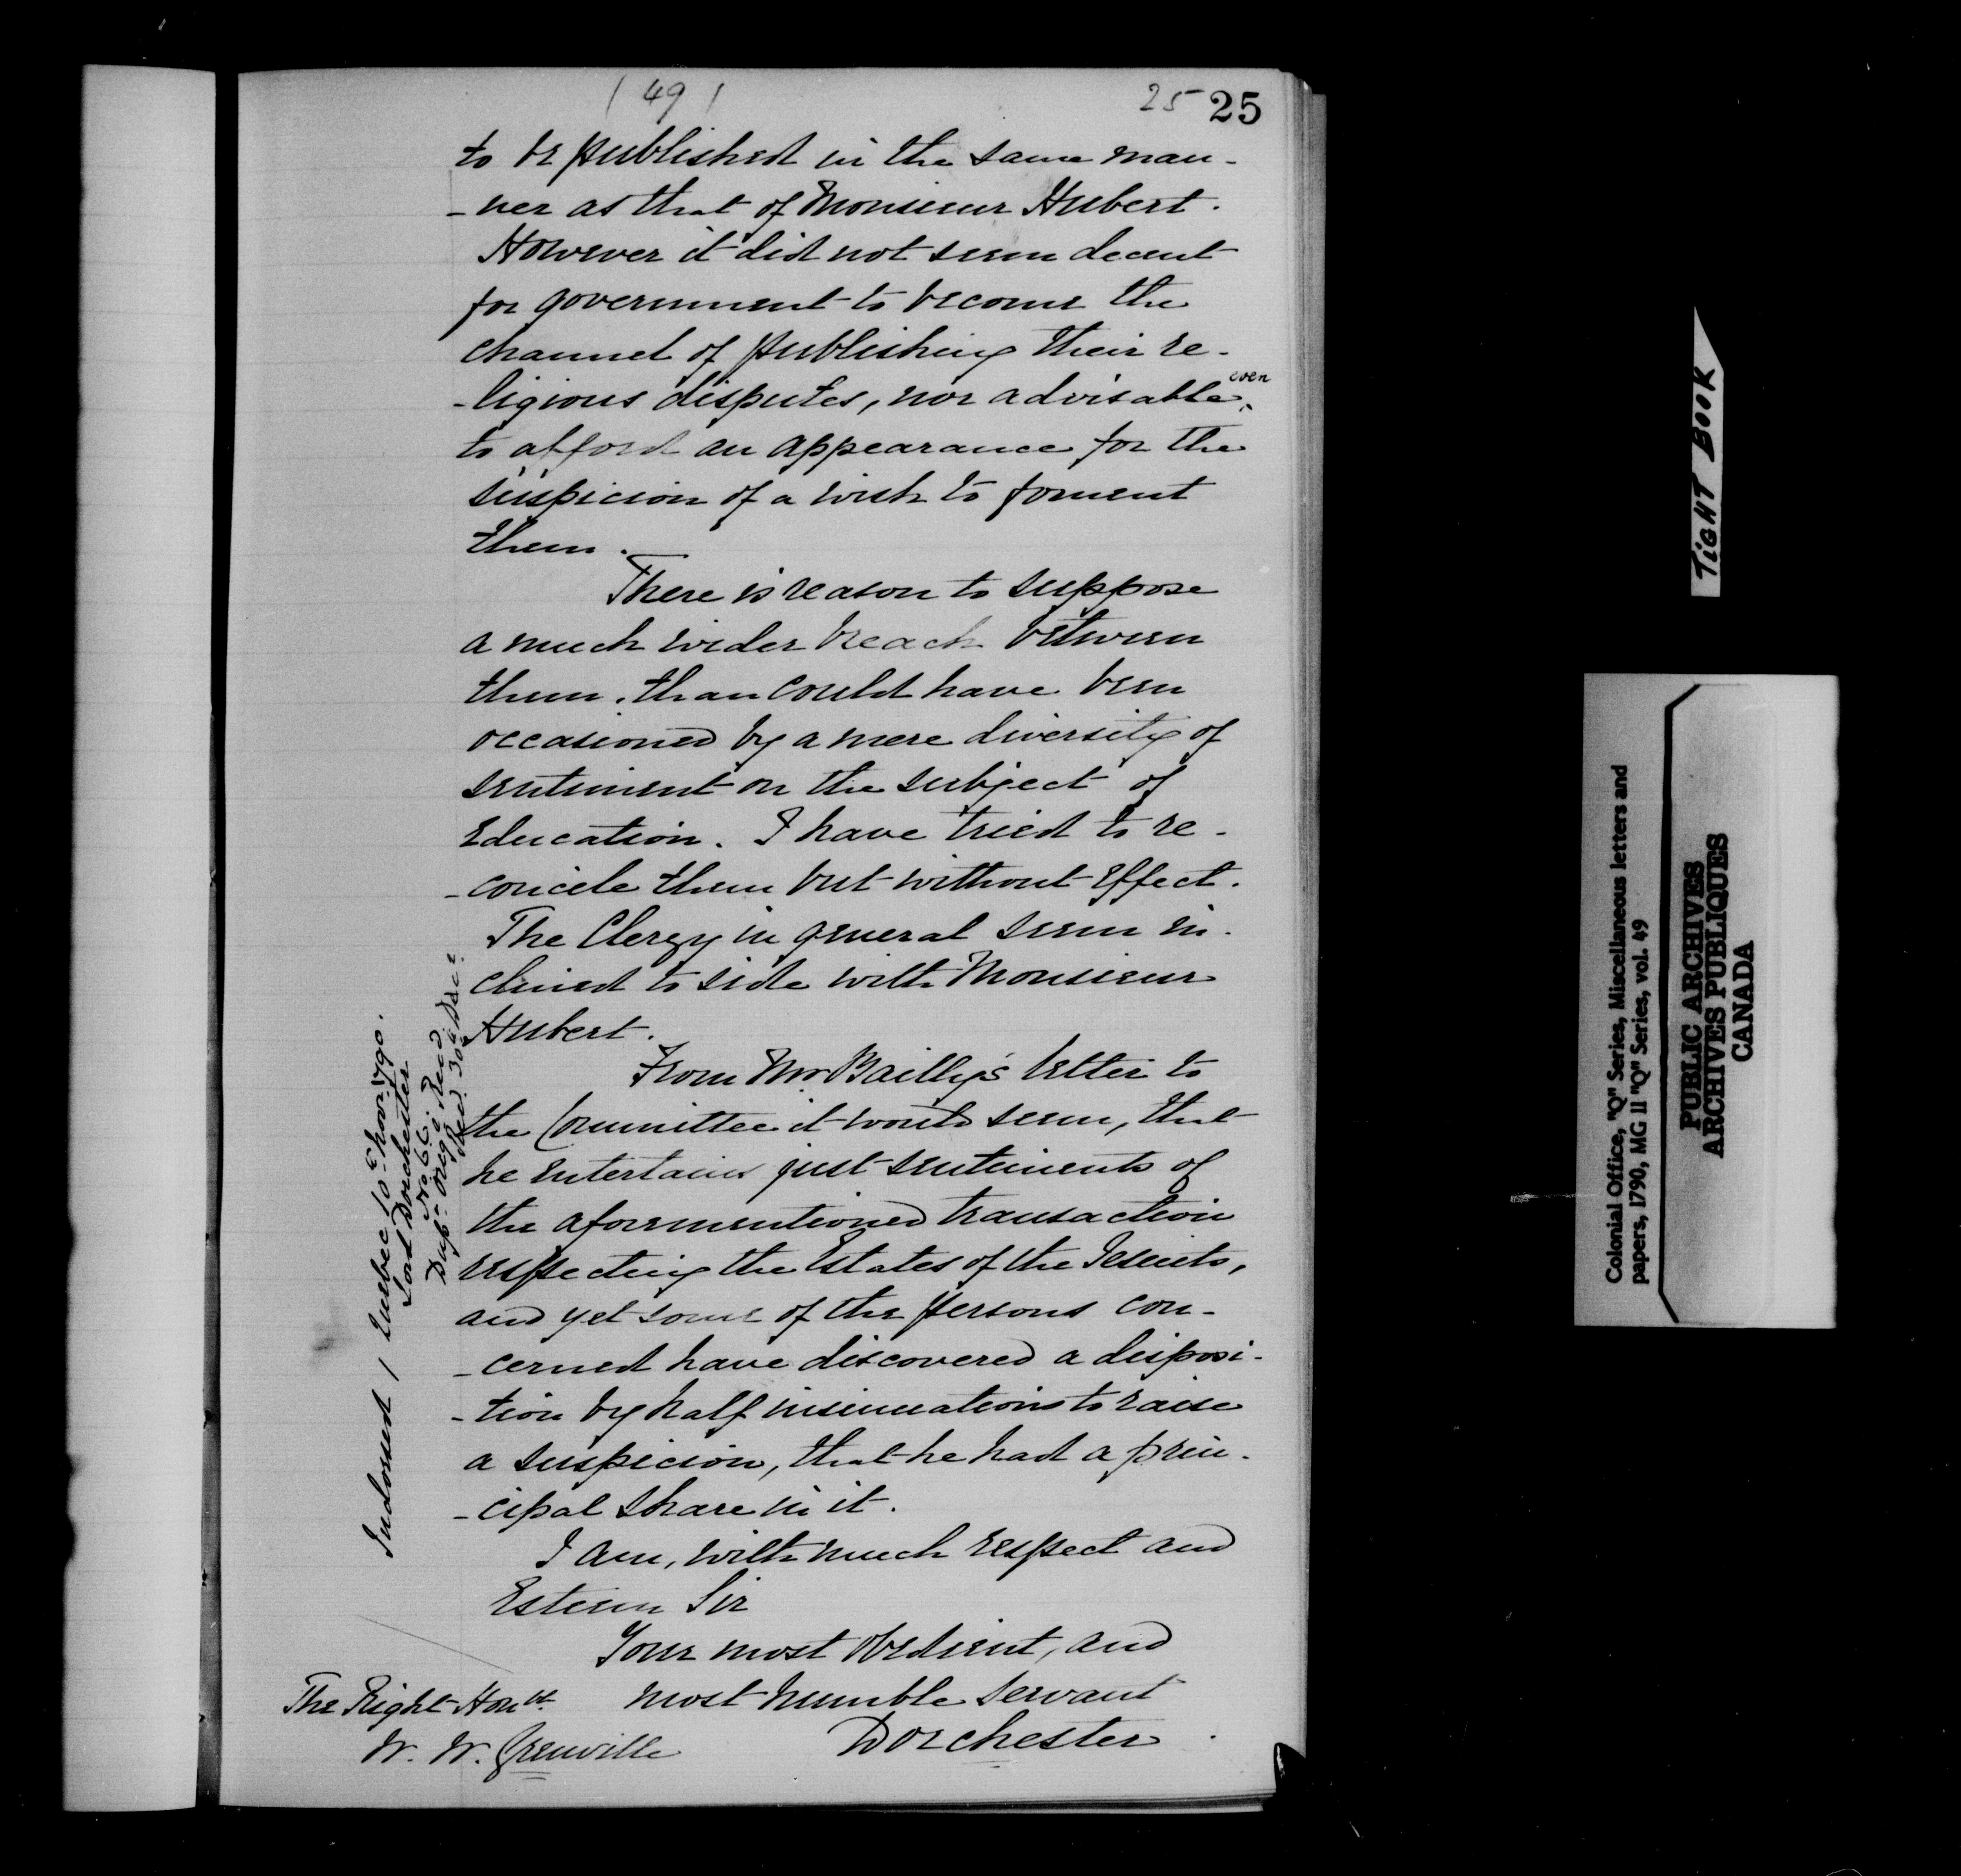 ( 49 )
25 25
to be published in the same man-
-ner as that of Monsieur Hubert.
However it did not seem decent
for government to become the
channel of publishing their re-
-ligious disputes, nor advisable even
to afford an appearance for the
suspicion of a wish to foment
them.
There is reason to suppose
a much wider breach between
them, than could have been
occasioned by a mere diversity of
sentiment on the subject of
Education. I have tried to re-
-concile them but without effect.
The Clergy in general seem in-
clined to side with Monsieur
Hubert.
From Mr Bailly's letter to
the Committee it would seem, that
he entertains just sentiments of
the aforementioned transaction
respecting the Estates of the Jesuits,
and yet some of the persons con-
-cerned have discovered a disposi-
-tion by half insinuations to raise
a suspicion, that he had a prin-
-cipal share in it.
I am, with much respect and
Esteem Sir
Your most obedient, and
most humble servant
Dorchester
The Right Honble
W. W. Grenville
Indorsed / Quebec 10th Novr 1790.
Lord Dorchester
No 66.
Dupe Origl Recd
Red 30th Decr
TIGHT BOOK
Colonial Office, "Q" Series, Miscellaneous letters and
papers, 1790, MG 11 "Q" Series, vol. 49
PUBLIC ARCHIVES
ARCHIVES PUBLIQUES
CANADA